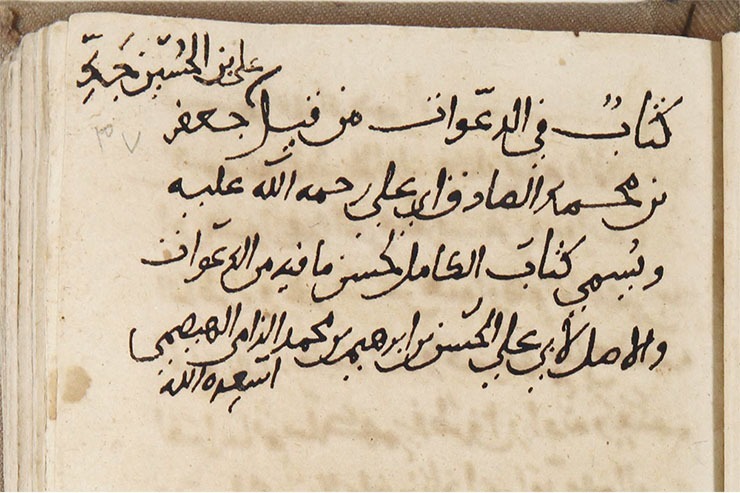 علي بن الحسين جده
كتاب في الدعوات من قبل جعفر
بن محمد الصادق ابن علي رحمه الله عليه
ويسمي كتاب الكامل لحسن ما فيه من الدعوات
والاصل لأبي علي الحسن بن ابرهيم بن محمد الزامي الهيصمي
اسعده الله